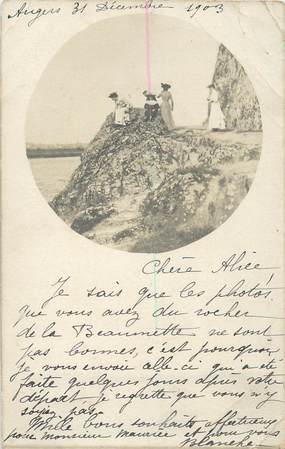 Angers 31 Décembre 1903
Chère Alice,
Je sais que les photos
que vous avez du rocher
de la Beaumette ne sont
pas bonnes, c'est pourquoi
je vous envoie celle-ci qui a été
faite quelques jours depuis votre
départ, je regrette que vous n'y
soyez pas.
Mille bons souhaits affectueux
pour Monsieur Maurice et pour vous
Blanche